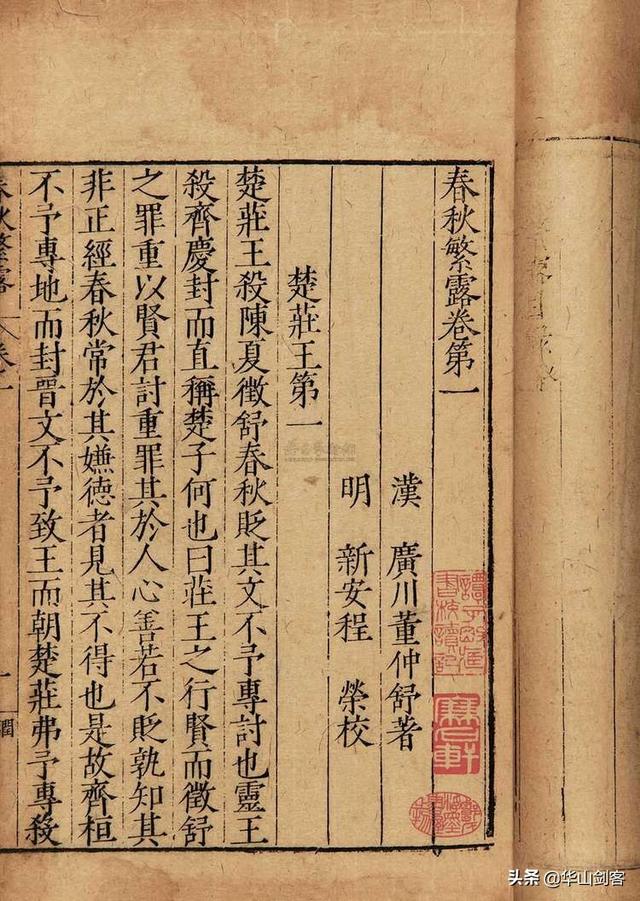 春秋繁露卷第一
漢 廣川董仲舒著
明 新安程 榮校
楚莊王第一
楚莊王殺陳夏徵舒春秋貶其文不予專討也靈王
殺齊慶封而直稱楚子何也曰莊王之行賢而徵舒
之罪重以賢君討重罪其於人心善若不貶孰知其
非正經春秋常於其嫌德者見其不得也是故齊桓
不予專地而封晉文不予致王而朝楚莊弗予專殺
春秋繁露 卷一
一
潤
头条 @华山剑客